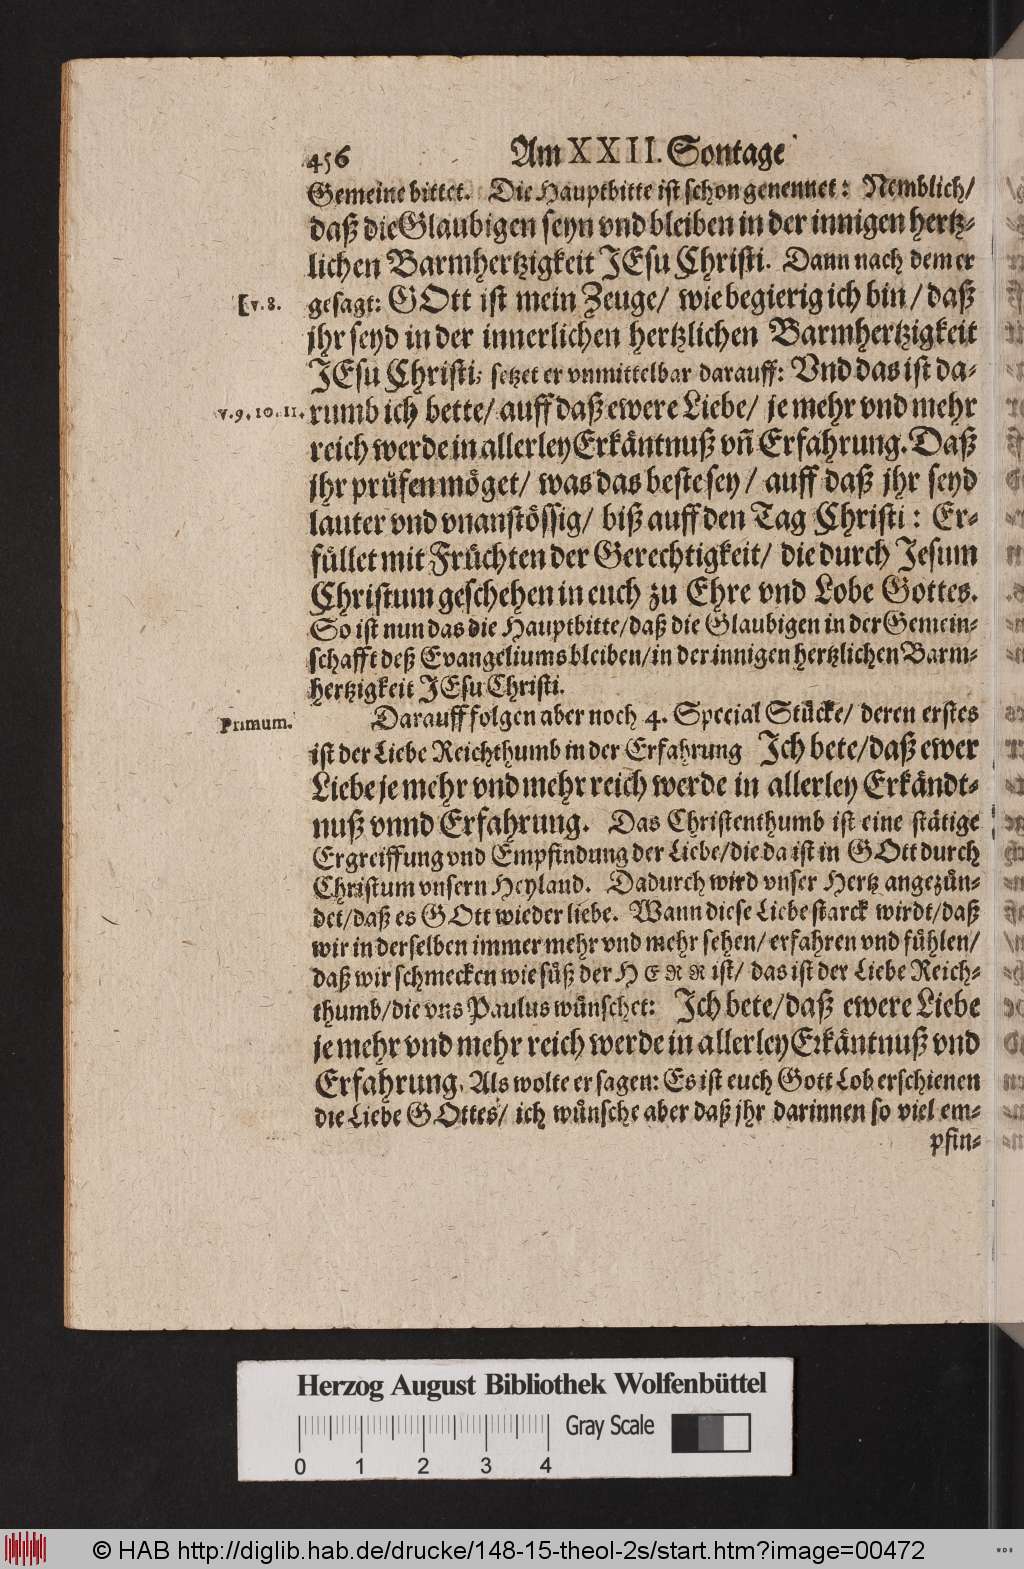 456 Am XXII. Sontage
Gemeine bittet. Die Hauptbitte ist schon genennet: Nemblich/
daß die Glaubigen seyn vnd bleiben in der innigen hertz-
lichen Barmhertzigkeit JEsu Christi. Dann nach dem er
[v. 8. gesagt: GOtt ist mein Zeuge/ wie begierig ich bin/ daß
jhr seyd in der innerlichen hertzlichen Barmhertzigkeit
JEsu Christi; setzet er vnmittelbar darauff: Vnd das ist da-
v. 9. 10. 11. rumb ich bette/ auff daß ewere Liebe/ je mehr vnd mehr
reich werde in allerley Erkäntnuß vñ Erfahrung. Daß
jhr prüfen möget/ was das beste sey/ auff daß jhr seyd
lauter vnd vnanstössig/ biß auff den Tag Christi: Er-
füllet mit Früchten der Gerechtigkeit/ die durch Jesum
Christum geschehen in euch zu Ehre vnd Lobe Gottes.
So ist nun das die Hauptbitte/ daß die Glaubigen in der Gemein-
schafft deß Evangeliums bleiben/ in der innigen hertzlichen Barm-
hertzigkeit JEsu Christi.
Primum. Darauff folgen aber noch 4. Special Stücke/ deren erstes
ist der Liebe Reichthumb in der Erfahrung Ich bete/ daß ewer
Liebe je mehr vnd mehr reich werde in allerley Erkändt-
nuß vnnd Erfahrung. Das Christenthumb ist eine stätige
Ergreiffung vnd Empfindung der Liebe/ die da ist in GOtt durch
Christum vnsern Heyland. Dadurch wird vnser Hertz angezün-
det/ daß es GOtt wieder liebe. Wann diese Liebe starck wirdt/ daß
wir in derselben immer mehr vnd mehr sehen/ erfahren vnd fühlen/
daß wir schmecken wie süß der HERR ist/ das ist der Liebe Reich-
thumb/ die vns Paulus wünschet: Ich bete/ daß ewere Liebe
je mehr vnd mehr reich werde in allerley Erkäntnuß vnd
Erfahrung. Als wolte er sagen: Es ist euch Gott Lob erschienen
die Liebe GOttes/ ich wünsche aber daß jhr darinnen so viel em-
pfin-
Herzog August Bibliothek Wolfenbüttel
Gray Scale
0 1 2 3 4
© HAB http://diglib.hab.de/drucke/148-15-theol-2s/start.htm?image=00472